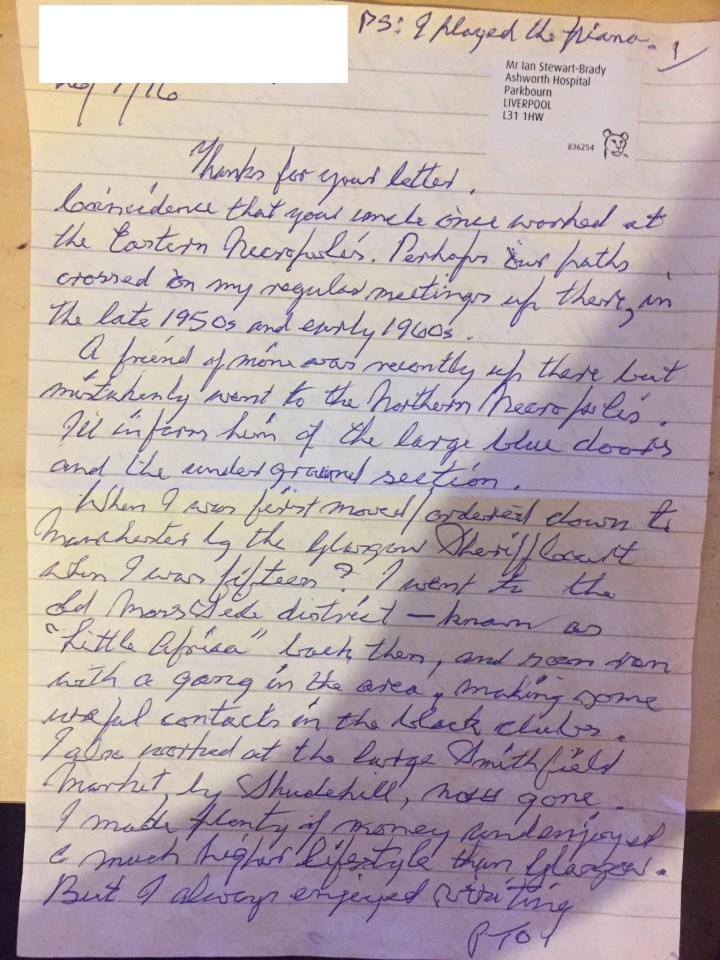 PS: I played the piano. !
Mr Ian Stewart-Brady
Ashworth Hospital
Parkbourn
LIVERPOOL
L31 1HW
836254
Thanks for your letter.
Coincidence that your uncle once worked at
the Eastern Necropolis. Perhaps our paths
crossed on my regular meetings up there, in
the late 1950s and early 1960s.
A friend of mine was recently up there but
mistakenly went to the Northern Necropolis.
I'll inform him of the large blue doors
and the underground section.
When I was first moved/ordered down to
Manchester by the Glasgow Sheriff Court
when I was fifteen? I went to the
old Moss Side district — known as
"Little Africa" back then, and soon ran
with a gang in the area, making some
useful contacts in the black clubs.
I also worked at the large Smithfield
Market, by Shudehill, now gone.
I made plenty of money and enjoyed
a much higher lifestyle than Glasgow.
But I always enjoyed visiting
PTO